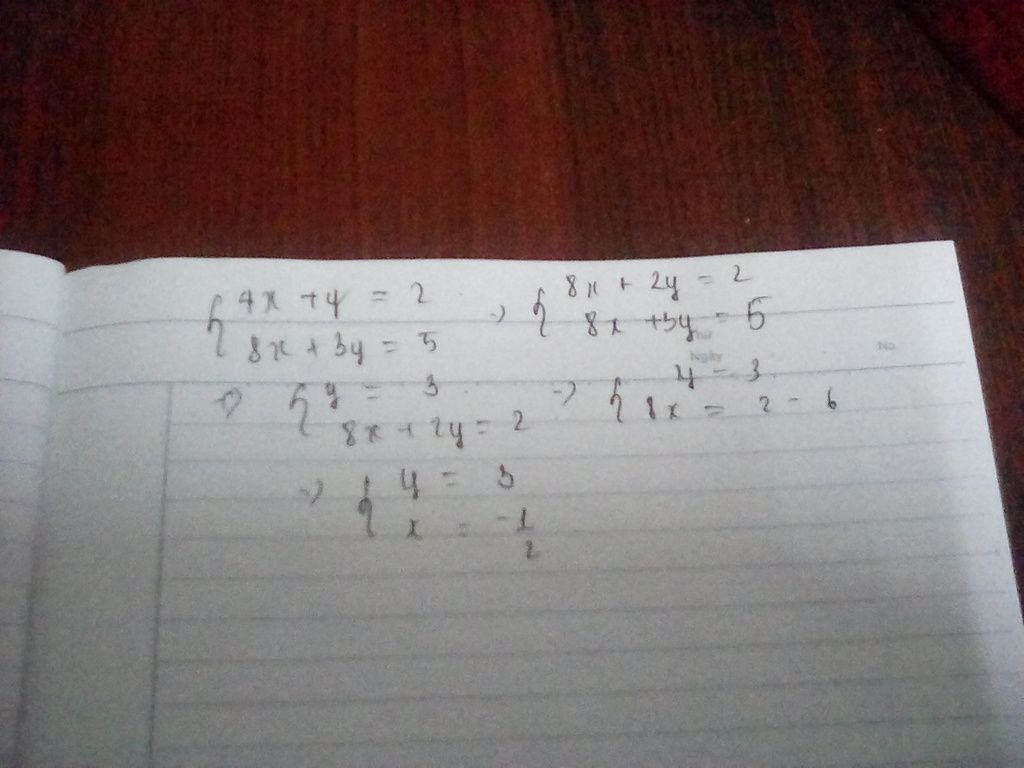 { 4x + y = 2 => { 8x + 2y = 2
8x + 3y = 5 8x + 3y = 5
Thứ
Ngày No.
=> { y = 3 => { y = 3
8x + 2y = 2 8x = 2 - 6
=> { y = 3
x = -1/2